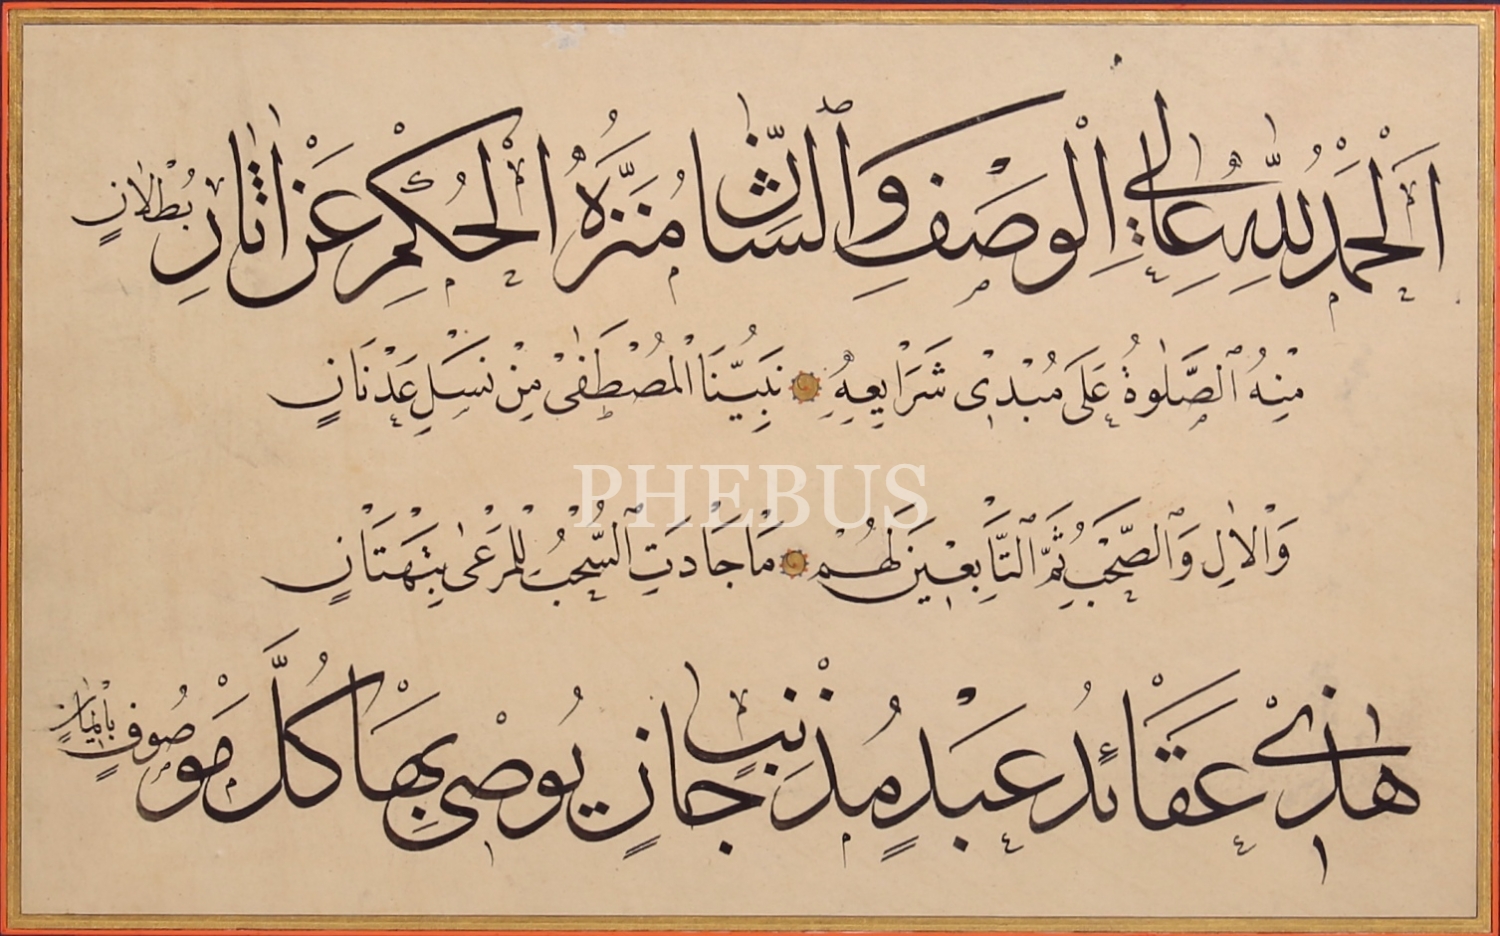 اَلْحَمْدُ لِلّٰهِ عَالِي الْوَصْفِ وَالشَّانِ مُنَزَّهُ الْحُكْمِ عَنْ اٰثَارِ بُطْلَانٍ
مِنْهُ الصَّلٰوةُ عَلَى مُبْدِي شَرَايِعِهِ نَبِيِّنَا الْمُصْطَفٰى مِنْ نَسْلِ عَدْنَانٍ
PHEBUS
وَالْاٰلِ وَالصَّحْبِ ثُمَّ التَّابِعِينَ لَهُمْ مَا جَادَتِ السُّحْبُ لِلْمَرْعٰى بِتَهْتَانٍ
هٰذِي عَقَائِدُ عَبْدٍ مُذْنِبٍ جَانٍ يُوصِي بِهَا كُلَّ مَوْصُوفٍ بِاِيْمَانٍ